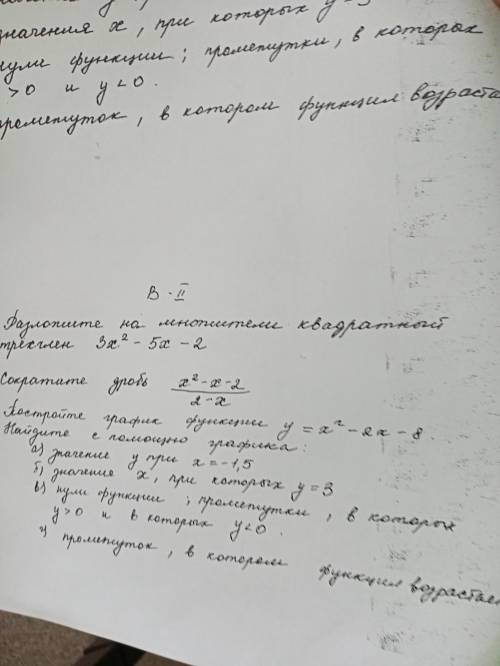 значения x, при которых y = 3
нули функции; промежутки, в которых
>0 и y < 0.
промежуток, в котором функция возраста
В - II
Разложите на множители квадратный
трехчлен 3x² - 5x - 2
Сократите дробь x² - x - 2 / 2 - x
Постройте график функции y = x² - 2x - 8.
Найдите с помощью графика:
а) значение y при x = -1,5
б) значение x, при которых y = 3
в) нули функции; промежутки, в которых
y > 0 и в которых y < 0.
г) промежуток, в котором функция возрастает